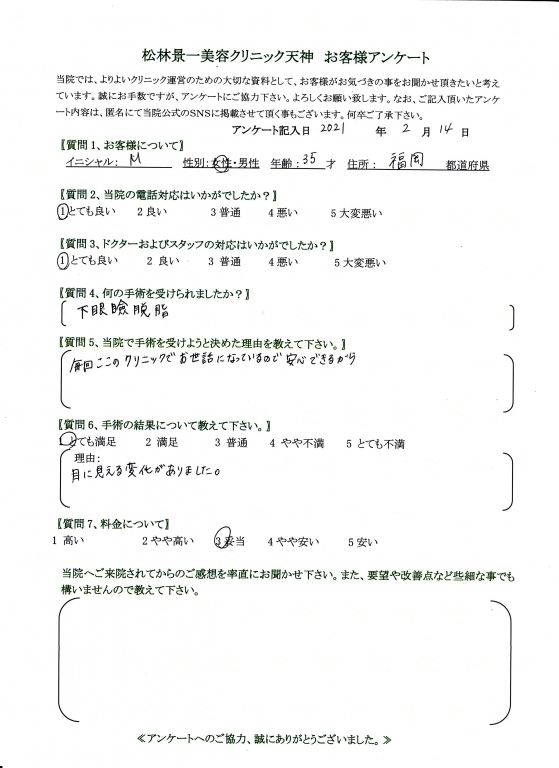 松林景一美容クリニック天神 お客様アンケート
当院では、よりよいクリニック運営のための大切な資料として、お客様がお気づきの事をお聞かせ頂きたいと考え
ています。誠にお手数ですが、アンケートにご協力下さい。よろしくお願い致します。なお、ご記入頂いたアンケ
ート内容は、匿名にて当院公式のSNSに掲載させて頂く事もございます。何卒ご了承下さい。
アンケート記入日 2021 年 2 月 14 日
【質問1、お客様について】
イニシャル: M 性別:女性・男性 年齢:35 才 住所: 福岡 都道府県
【質問2、当院の電話対応はいかがでしたか?】
1とても良い 2良い 3普通 4悪い 5大変悪い
【質問3、ドクターおよびスタッフの対応はいかがでしたか?】
1とても良い 2 良い 3 普通 4悪い 5大変悪い
【質問4、何の手術を受けられましたか?】
下眼瞼脱脂
【質問5、当院で手術を受けようと決めた理由を教えて下さい。】
毎回ここのクリニックでお世話になっているので安心できるから
【質問6、手術の結果について教えて下さい。】
1 とても満足 2 満足 3 普通 4 やや不満 5 とても不満
理由:
目に見える変化がありました。
【質問7、料金について】
1 高い 2やや高い 3妥当 4やや安い 5安い
当院へご来院されてからのご感想を率直にお聞かせ下さい。また、要望や改善点など些細な事でも
構いませんので教えて下さい。
≪アンケートへのご協力、誠にありがとうございました。≫